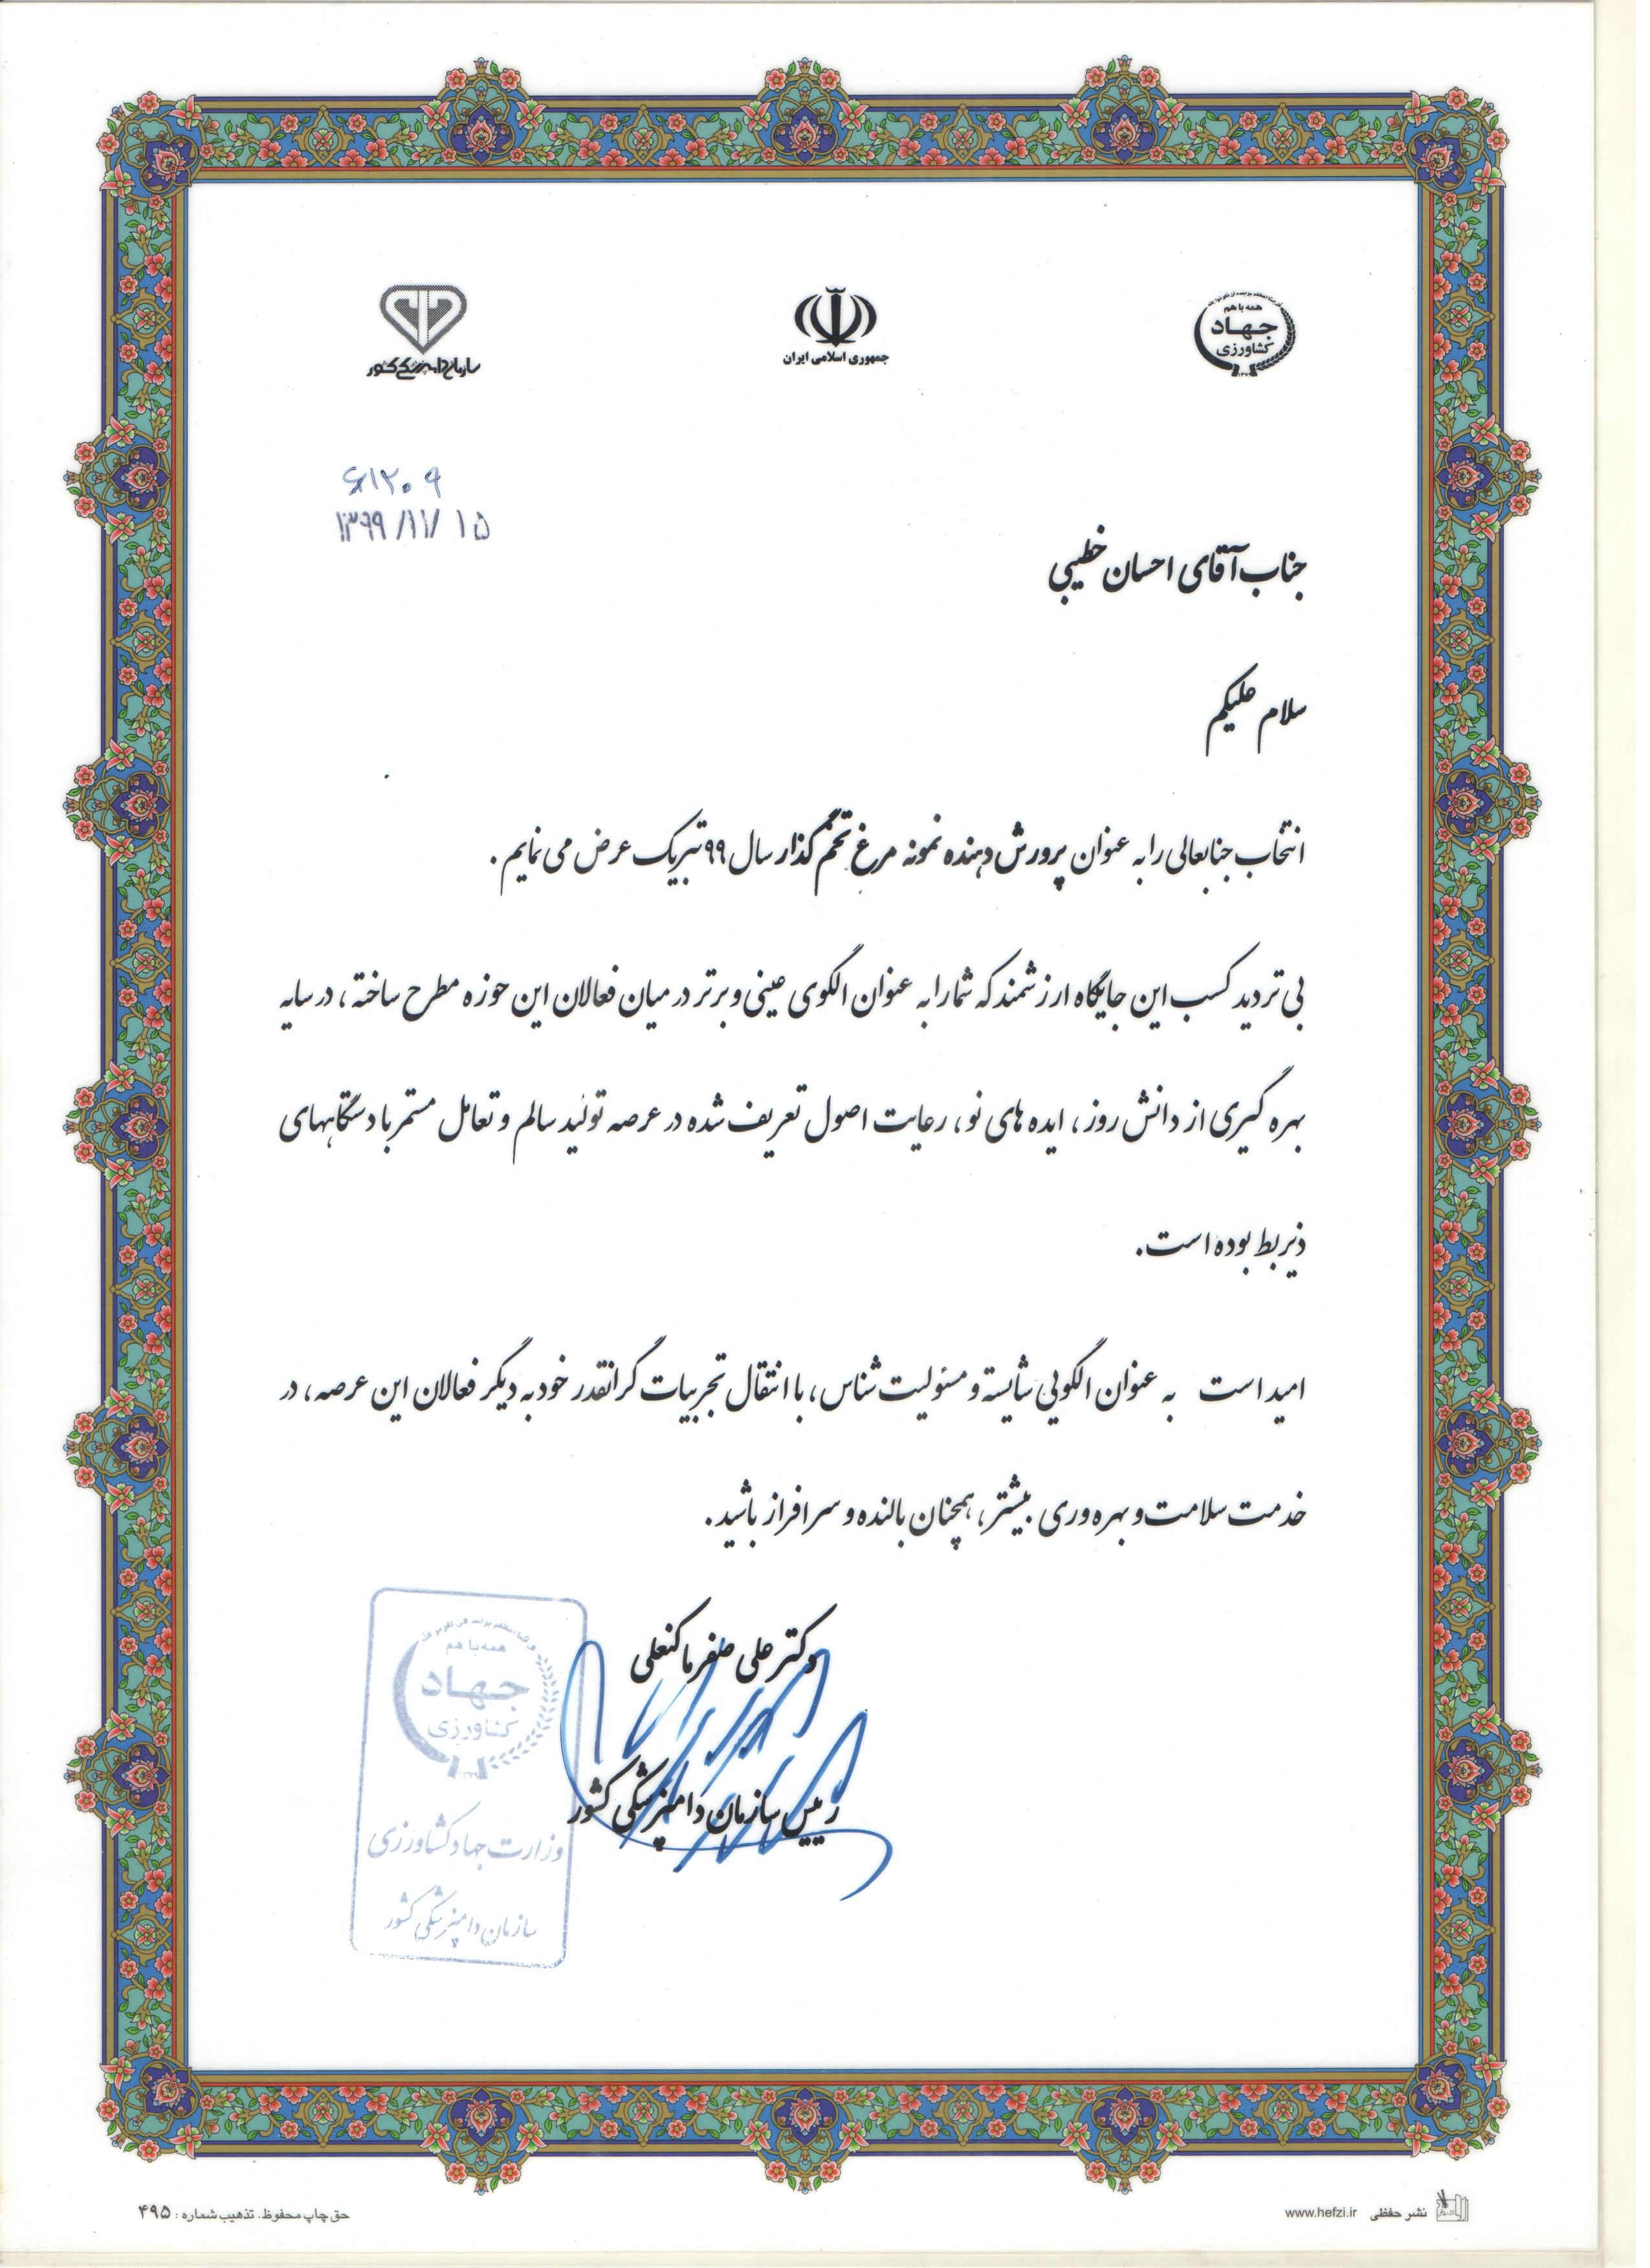 همه با هم
جهاد
کشاورزی
جمهوری اسلامی ایران
سازمان دامپزشکی کشور
۶۱۲۰۹
۱۳۹۹/۱۱/۱۵
جناب آقای احسان خطیبی
سلام علیکم
انتخاب جنابعالی را به عنوان پرورش دهنده نمونه مرغ تخم گذار سال ۹۹ تبریک عرض می نمایم .
بی تردید کسب این جایگاه ارزشمند که شما را به عنوان الگوی عینی و برتر در میان فعالان این حوزه مطرح ساخته ، در سایه
بهره گیری از دانش روز ، ایده های نو ، رعایت اصول تعریف شده در عرصه تولید سالم و تعامل مستمر با دستگاههای
ذیربط بوده است .
امید است به عنوان الگویی شایسته و مسئولیت شناس ، با انتقال تجربیات گرانقدر خود به دیگر فعالان این عرصه ، در
خدمت سلامت و بهره وری بیشتر ، همچنان بالنده و سرافراز باشید .
دکتر علی صفر ماکنعلی
رئیس سازمان دامپزشکی کشور
همه با هم
جهاد
کشاورزی
وزارت جهاد کشاورزی
سازمان دامپزشکی کشور
نشر حفظی www.hefzi.ir
حق چاپ محفوظ. تذهیب شماره : ۴۹۵